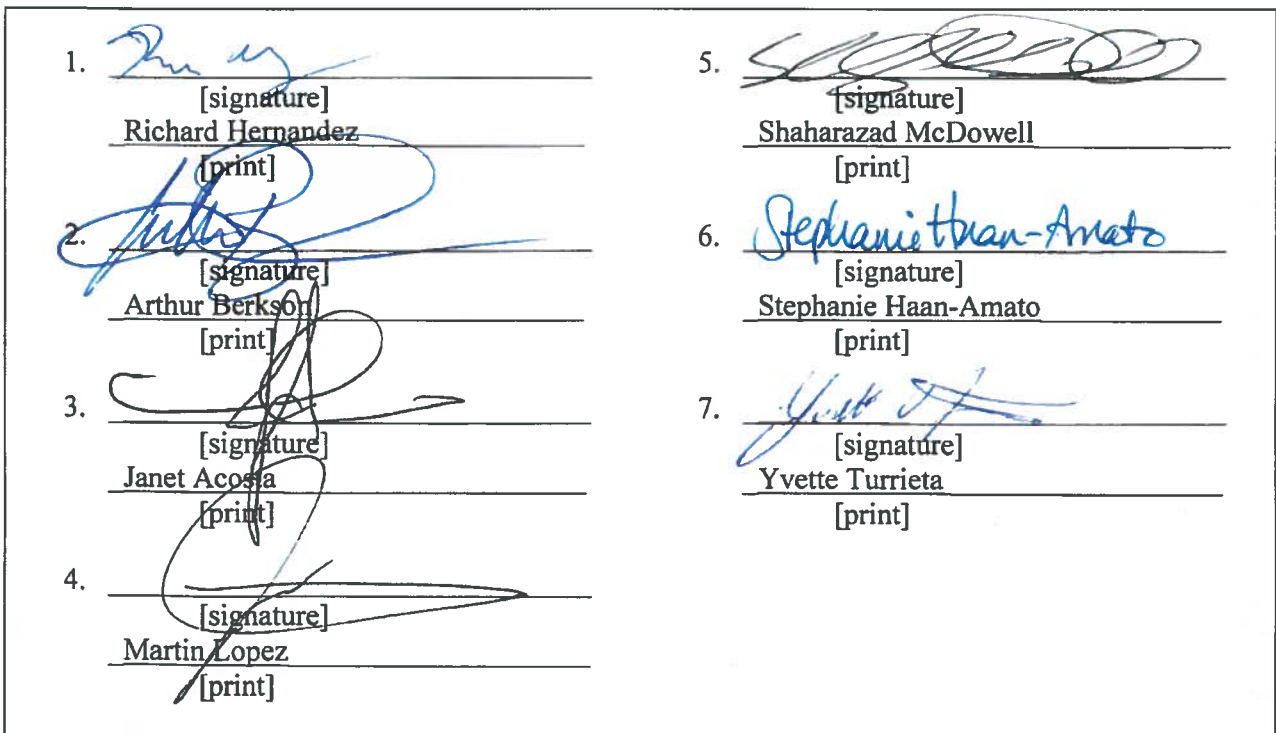 1.
[signature]
Richard Hernandez
[print]
2.
[signature]
Arthur Berkson
[print]
3.
[signature]
Janet Acosta
[print]
4.
[signature]
Martin Lopez
[print]
5.
[signature]
Shaharazad McDowell
[print]
6. Stephanie Haan-Amato
[signature]
Stephanie Haan-Amato
[print]
7. Yvette
[signature]
Yvette Turrieta
[print]